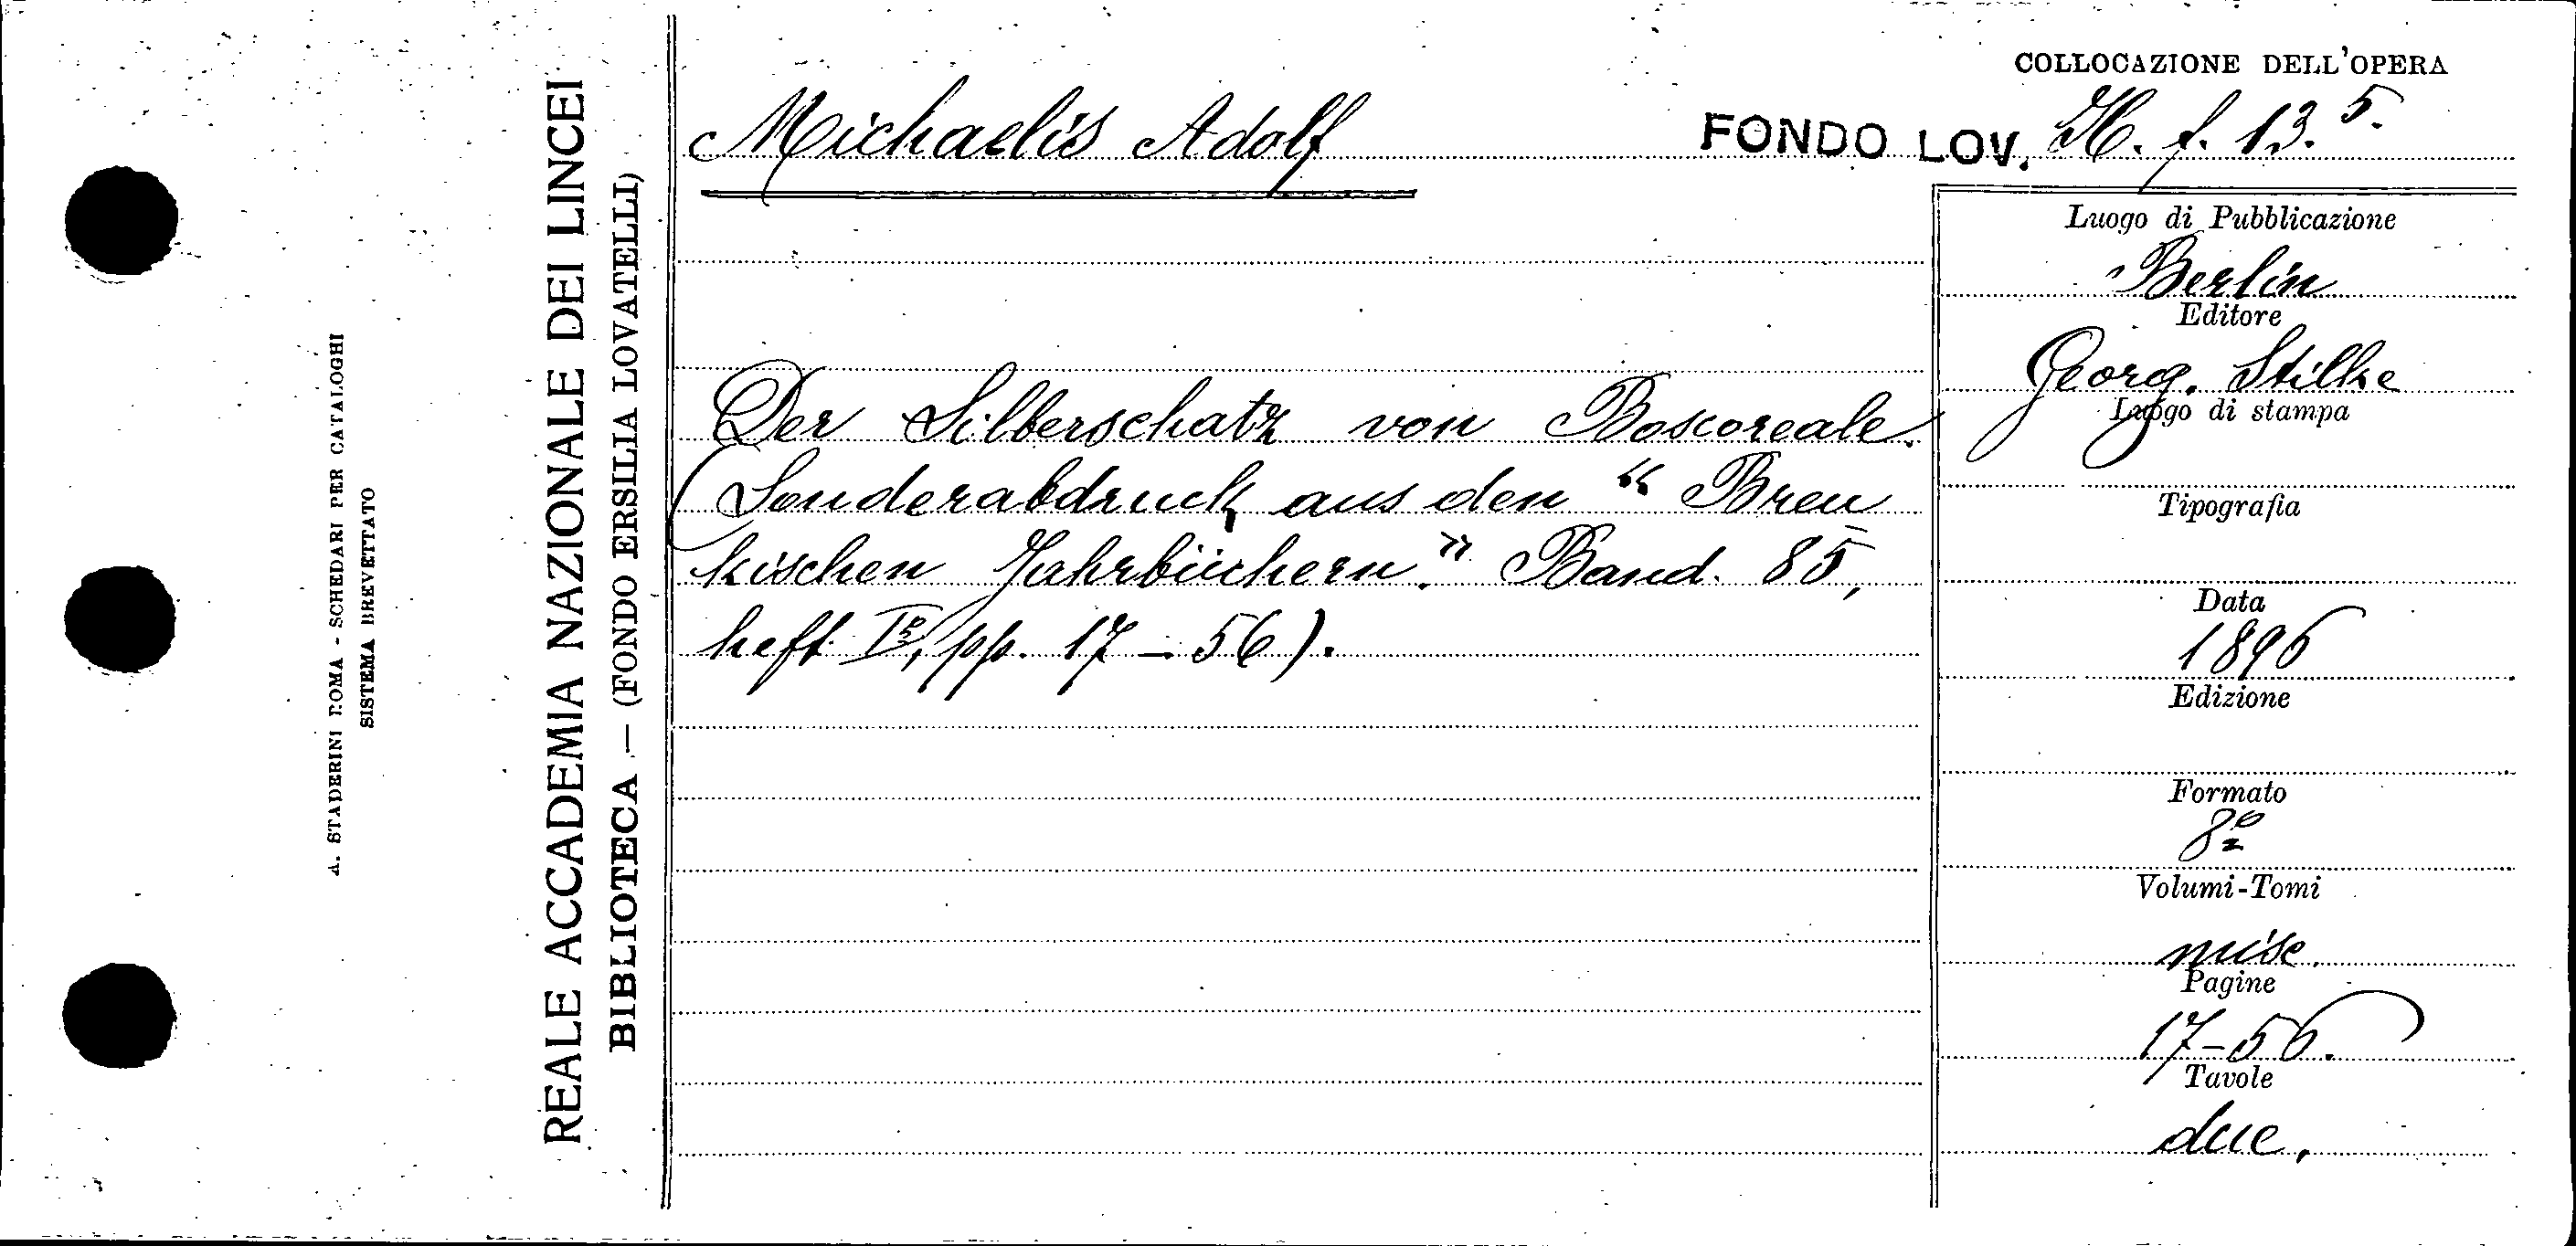 COLLOCAZIONE DELL'OPERA
Michaelis Adolf
FONDO LOV. H. f. 13. 5.
Der Silberschatz von Boscoreale.
(Sonderabdruck aus den “ Breu
kischen Jahrbüchern.” Band. 85,
heft I, pp. 17 - 56).
Luogo di Pubblicazione
Berlin
Editore
Georg. Stilke
Luogo di stampa
Tipografia
Data
1896
Edizione
Formato
8º
Volumi-Tomi
misc.
Pagine
17-56.
Tavole
due.
REALE ACCADEMIA NAZIONALE DEI LINCEI
BIBLIOTECA — (FONDO ERSILIA LOVATELLI)
A. STADERINI ROMA - SCHEDARI PER CATALOGHI
SISTEMA BREVETTATO